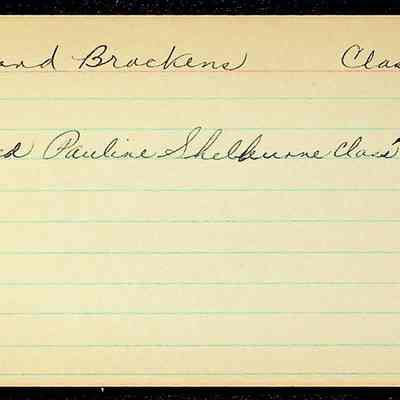 and Brackens Clas
ed Pauline Shelburne Class